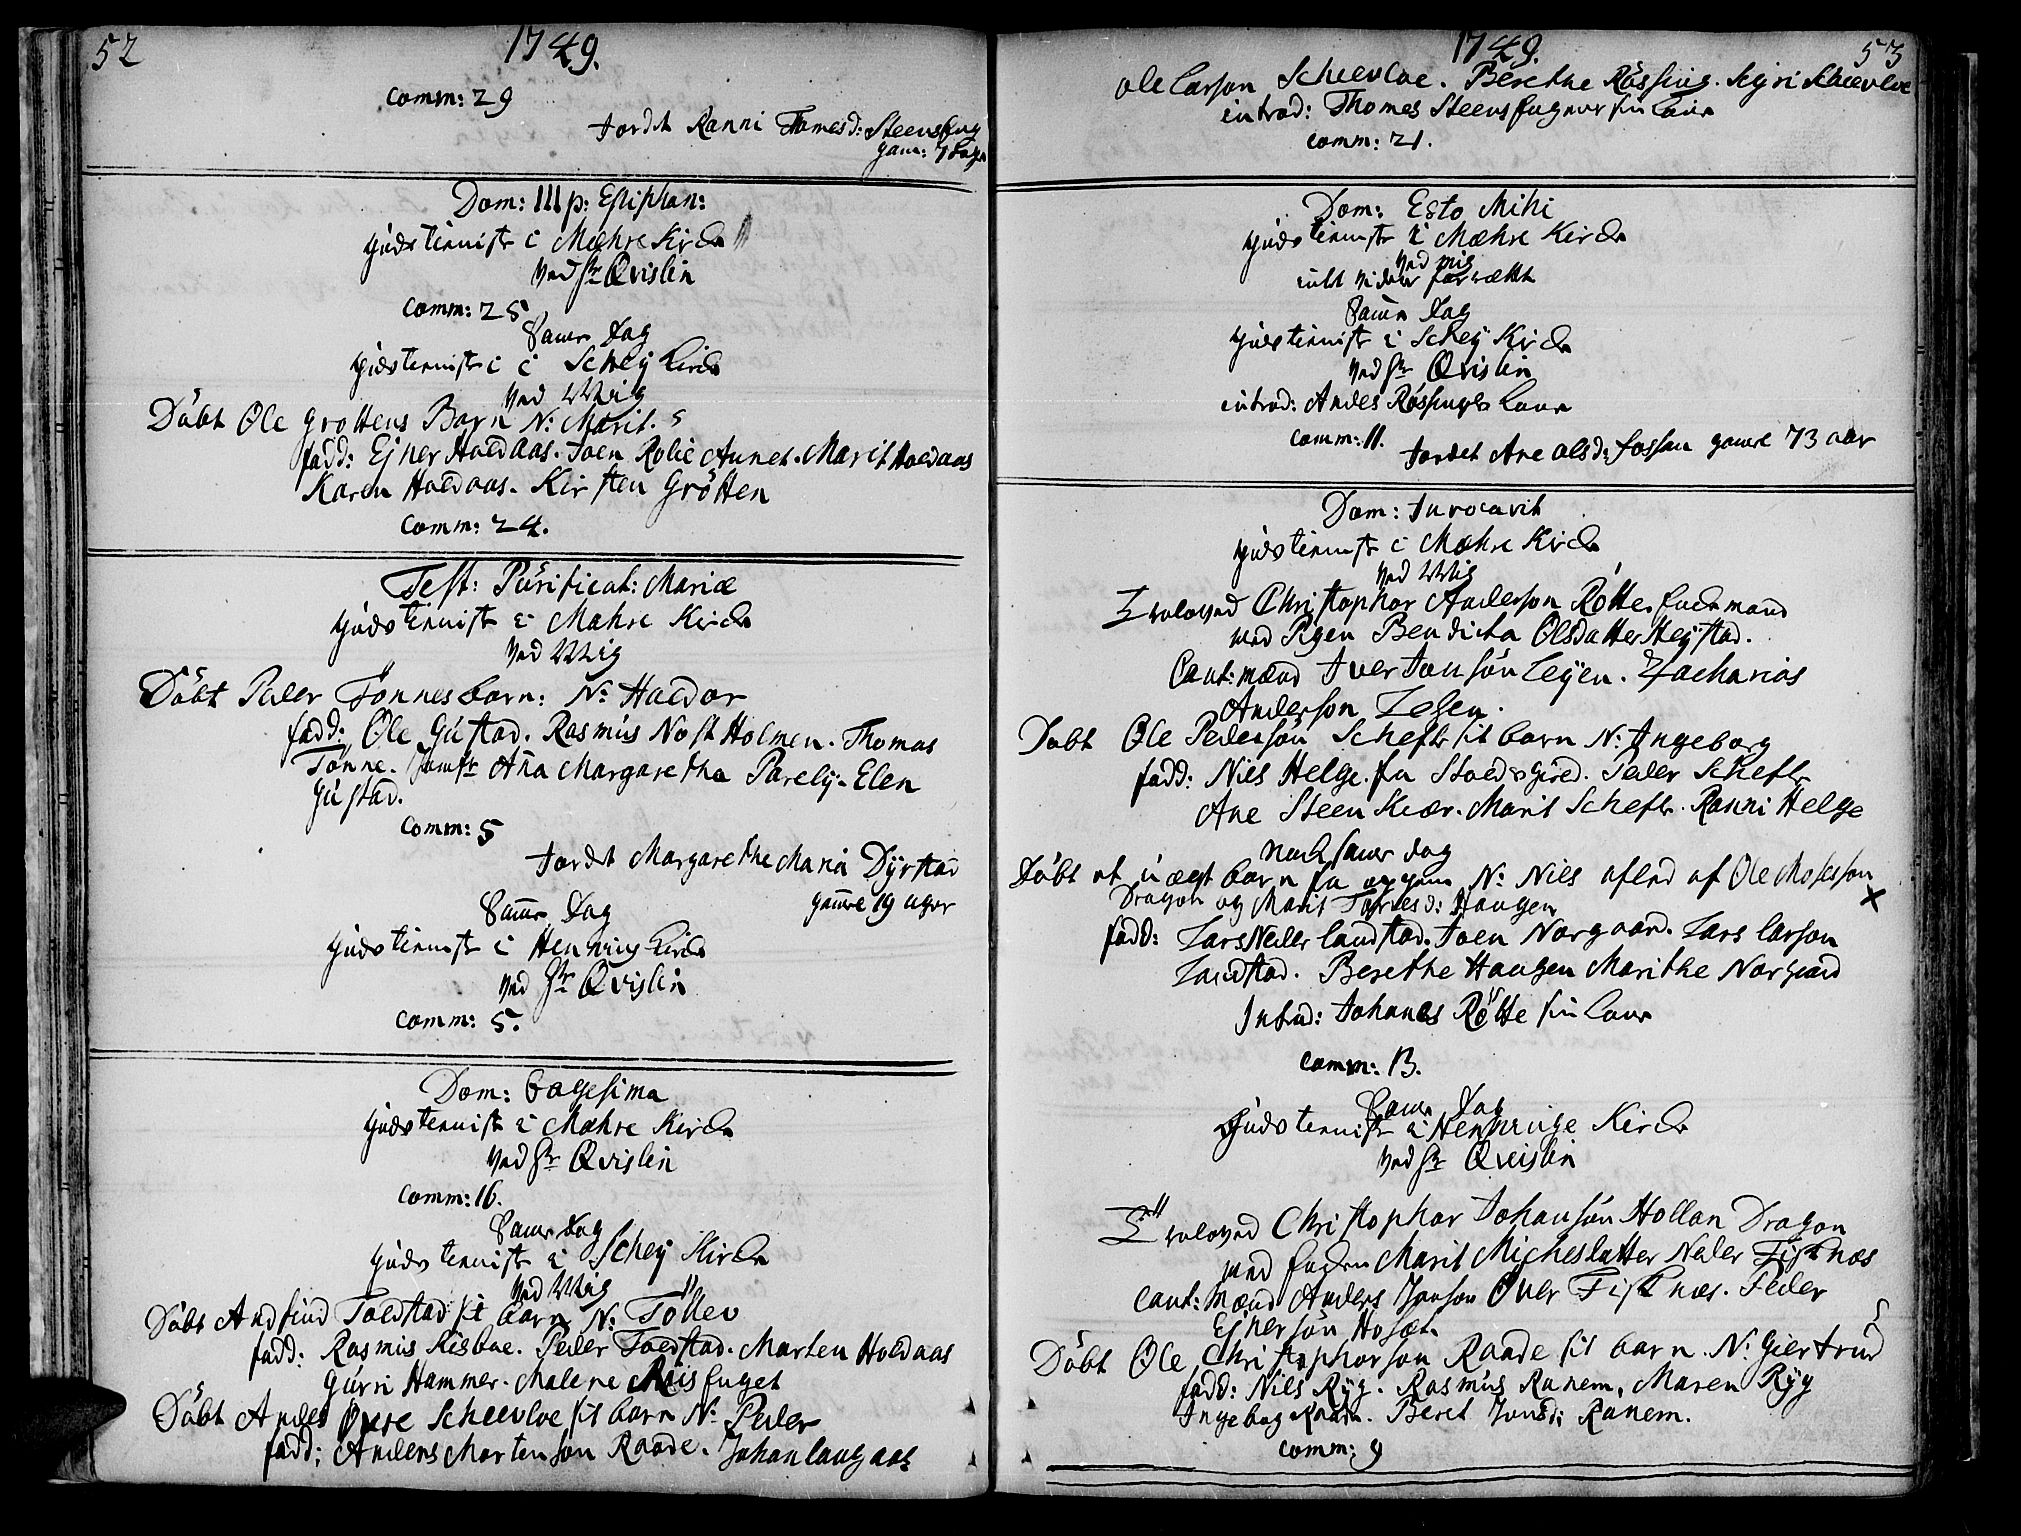 52
1749.
Comm: 29
Jordet Ranni Thomesd: Steensfug
gam: 7 Dage
Dom: III p: Epiphan:
Gudstienist i Mæhre Kirche
ved Hr Qvislin
Comm: 25
Samme Dag
Gudstienist i Schey Kirche
ved Mig
Döbt Ole Grøttens Barn N: Marit.
fadd: Ejner Holdaas. Joen Rolie Aunet. Marit Holdaas
Karen Holdaas. Kirsten Grötten
Comm: 24.
Fest: Purificat: Mariæ
Gudstienist i Mæhre Kirche
ved Mig
Döbt Peder Tönnes barn: N: Haldor
fadd: Ole Gustad. Rasmus Nost Holmen. Thomas
Tønne. Jomfr Ana Margaretha Parely. Elen
Gustad.
Comm: 5
Jordet Margarethe Maria Dyrstad
gamle 19 uger
Samme Dag
Gudstienist i Henning Kirche
ved Hr Qvislin
Comm: 5.
Dom: 6agesima
Gudstienist i Mæhre Kirche
ved Hr Qvislin
Comm: 16.
Samme Dag
Gudstienist i Schey Kirche
ved Mig
Döbt Andfind Toldstad sit barn N: Töllev
fadd: Rasmus Risbae. Peder Toldstad. Morten Holdaas
Gurri Hammer. Malene
Döbt Anders Øfre Scheevloe sit barn N: Peder
fadd: Anders Mortenson Raade. Johan langaas
1749.
53
Ole Larson Scheevloe. Berethe Røssing. Sigri Scheevloe
introd: Thomes Steensfugner sin Kone
Comm: 21.
Dom: Esto Mihi
Gudstienist i Mæhre Kirche
ved mig
intet videre forrettet
Samme Dag
Gudstienist i Schey Kirche
ved Hr Qvislin
introd: Andes Røssings Kone
Comm: 11.
Jordet Ane Olsd: fossen gamle 73 aar
Dom: Invocavit
Gudstienist i Mæhre Kirche
ved Mig
Trolovet Christopher Anderson Røtte Enchemand
med Pigen Bendicta Olsdatter Heystad.
Caut: mænd Iver Jonsön Leyen. Zacharias
Anderson
Döbt Ole Pedersön Schefte sit barn N: Ingeborg
fadd: Nils Helge. fra Stoedsgired. Peder Schefte
Ane Steen Kiær. Marit Schefte. Ranni Helge
Nock samme dag
Döbt et uægt barn fra N: Niels aflad af Ole Mosesson
Dragon og Marit Haugen
fadd: Lars Neder landstad. Joen Norgaard. Lars larson
Landstad. Berethe Haugen Marithe Norgaard
Introd: Johanes Rötte sin Kone
Comm: 13.
Samme Dag
Gudstienist i Henninge Kirche
ved Hr Qvislin
Trolovet Christopher Johansön Hollan Dragon
med Enchen Marit Michelsdatter Neder Fisknæs
Caut: Mænd Anders Jonson Over Fisknæs. Peder
Ejnersön
Döbt Ole Christopherson Raade sit barn. N: Giertrud
fadd: Niels Ryg. Rasmus Ranem, Maren Ryg
Ingebog Raade. Beret Jonsd: Ranem.
Comm: 9